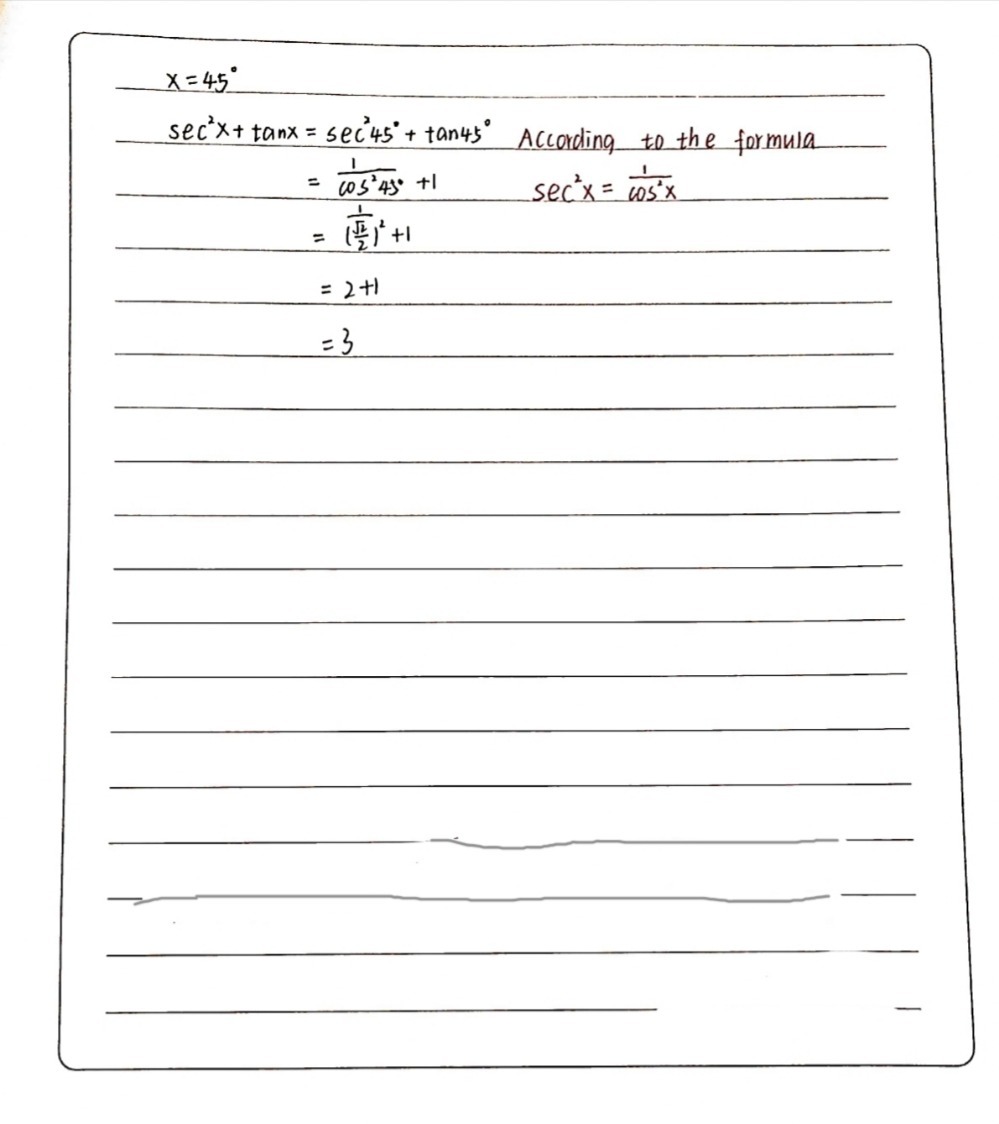 x = 45°
sec²x + tanx = sec²45° + tan45° According to the formula
= 1/cos²45° + 1 sec²x = 1/cos²x
= (1/(√2/2))² + 1
= 2+1
= 3